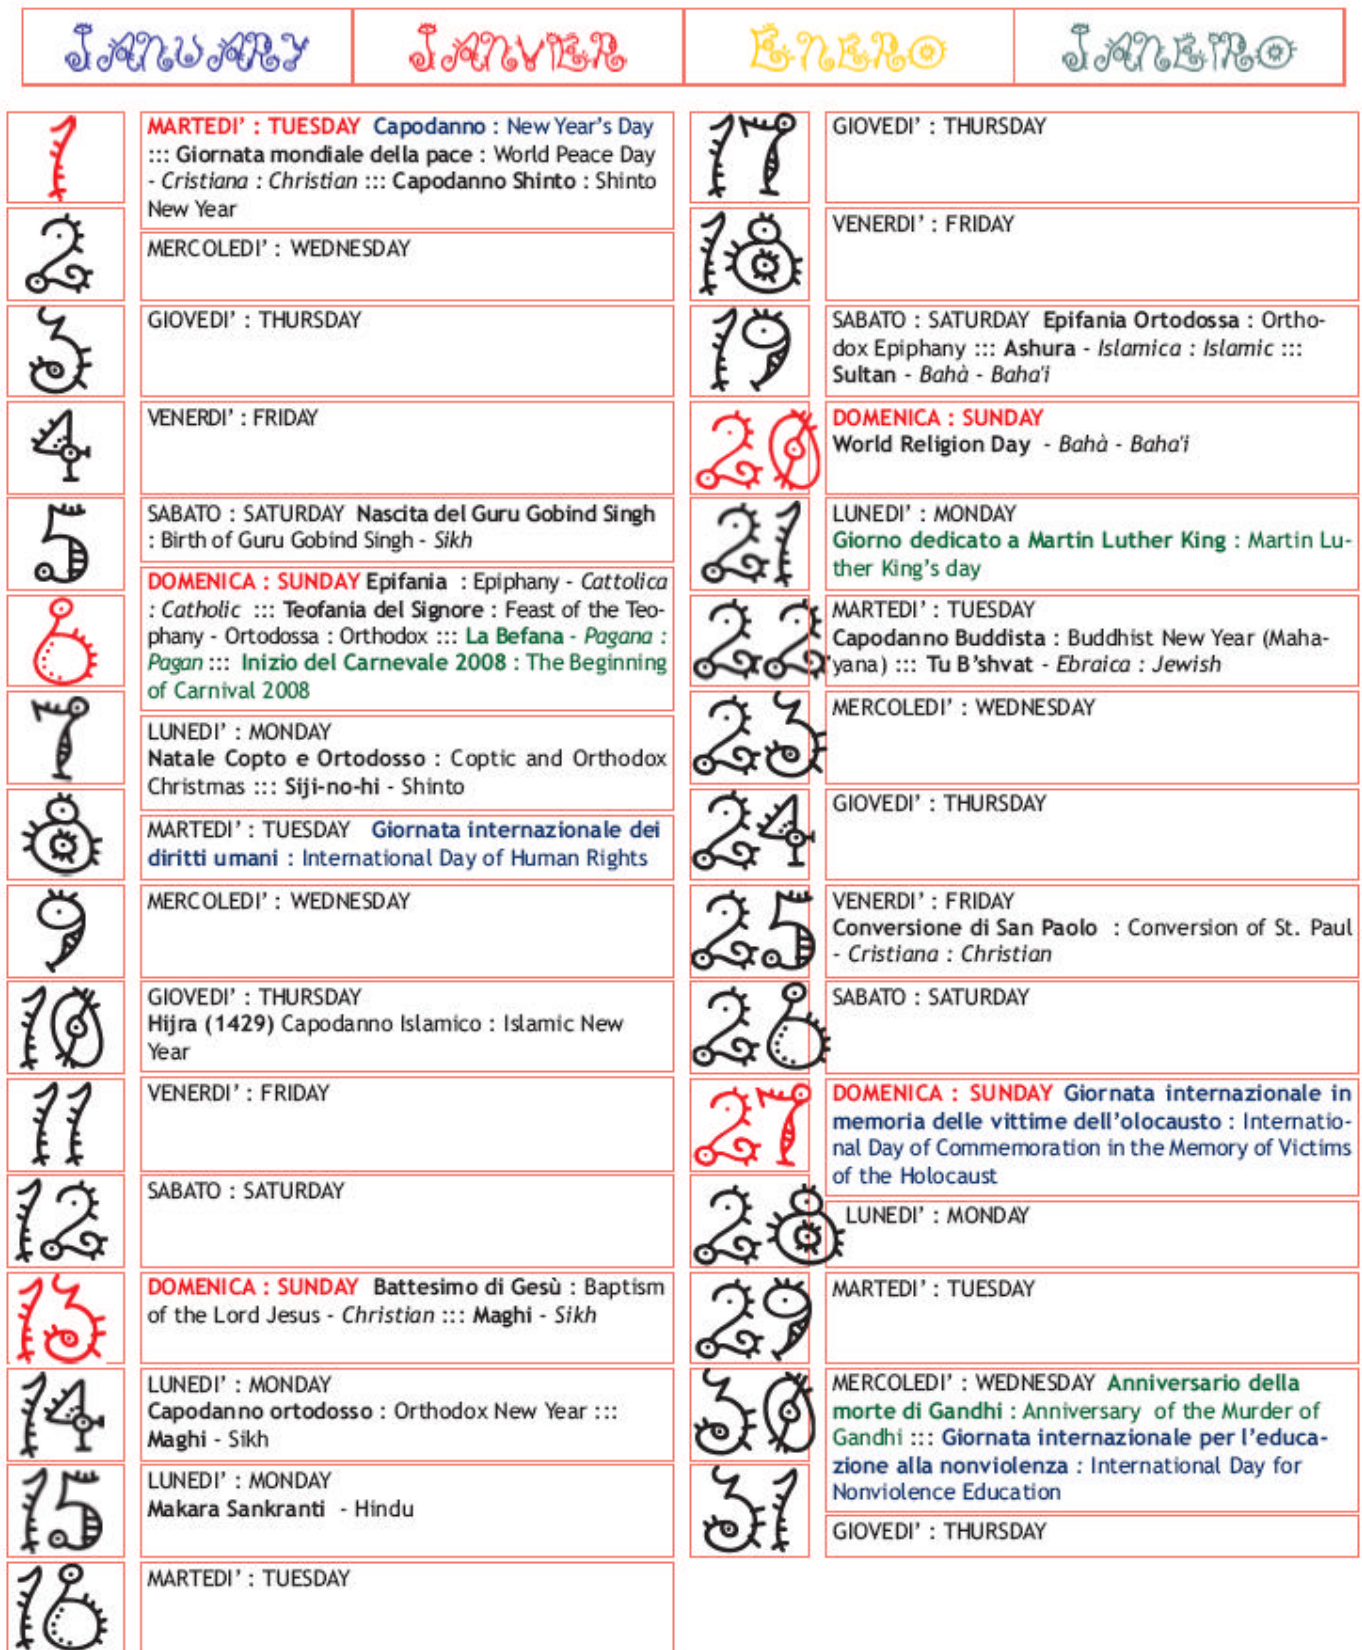 JANUARY JANVIER ENERO JANEIRO
1
MARTEDI’ : TUESDAY Capodanno : New Year’s Day
::: Giornata mondiale della pace : World Peace Day
- Cristiana : Christian ::: Capodanno Shinto : Shinto
New Year
2
MERCOLEDI’ : WEDNESDAY
3
GIOVEDI’ : THURSDAY
4
VENERDI’ : FRIDAY
5
SABATO : SATURDAY Nascita del Guru Gobind Singh
: Birth of Guru Gobind Singh - Sikh
6
DOMENICA : SUNDAY Epifania : Epiphany - Cattolica
: Catholic ::: Teofania del Signore : Feast of the Teo-
phany - Ortodossa : Orthodox ::: La Befana - Pagana :
Pagan ::: Inizio del Carnevale 2008 : The Beginning
of Carnival 2008
7
LUNEDI’ : MONDAY
Natale Copto e Ortodosso : Coptic and Orthodox
Christmas ::: Siji-no-hi - Shinto
8
MARTEDI’ : TUESDAY Giornata internazionale dei
diritti umani : International Day of Human Rights
9
MERCOLEDI’ : WEDNESDAY
10
GIOVEDI’ : THURSDAY
Hijra (1429) Capodanno Islamico : Islamic New
Year
11
VENERDI’ : FRIDAY
12
SABATO : SATURDAY
13
DOMENICA : SUNDAY Battesimo di Gesù : Baptism
of the Lord Jesus - Christian ::: Maghi - Sikh
14
LUNEDI’ : MONDAY
Capodanno ortodosso : Orthodox New Year :::
Maghi - Sikh
15
LUNEDI’ : MONDAY
Makara Sankranti - Hindu
16
MARTEDI’ : TUESDAY
17
GIOVEDI’ : THURSDAY
18
VENERDI’ : FRIDAY
19
SABATO : SATURDAY Epifania Ortodossa : Ortho-
dox Epiphany ::: Ashura - Islamica : Islamic :::
Sultan - Bahà - Baha'i
20
DOMENICA : SUNDAY
World Religion Day - Bahà - Baha'i
21
LUNEDI’ : MONDAY
Giorno dedicato a Martin Luther King : Martin Lu-
ther King’s day
22
MARTEDI’ : TUESDAY
Capodanno Buddista : Buddhist New Year (Maha-
yana) ::: Tu B’shvat - Ebraica : Jewish
23
MERCOLEDI’ : WEDNESDAY
24
GIOVEDI’ : THURSDAY
25
VENERDI’ : FRIDAY
Conversione di San Paolo : Conversion of St. Paul
- Cristiana : Christian
26
SABATO : SATURDAY
27
DOMENICA : SUNDAY Giornata internazionale in
memoria delle vittime dell’olocausto : Internatio-
nal Day of Commemoration in the Memory of Victims
of the Holocaust
28
LUNEDI’ : MONDAY
29
MARTEDI’ : TUESDAY
30
MERCOLEDI’ : WEDNESDAY Anniversario della
morte di Gandhi : Anniversary of the Murder of
Gandhi ::: Giornata internazionale per l’educa-
zione alla nonviolenza : International Day for
Nonviolence Education
31
GIOVEDI’ : THURSDAY